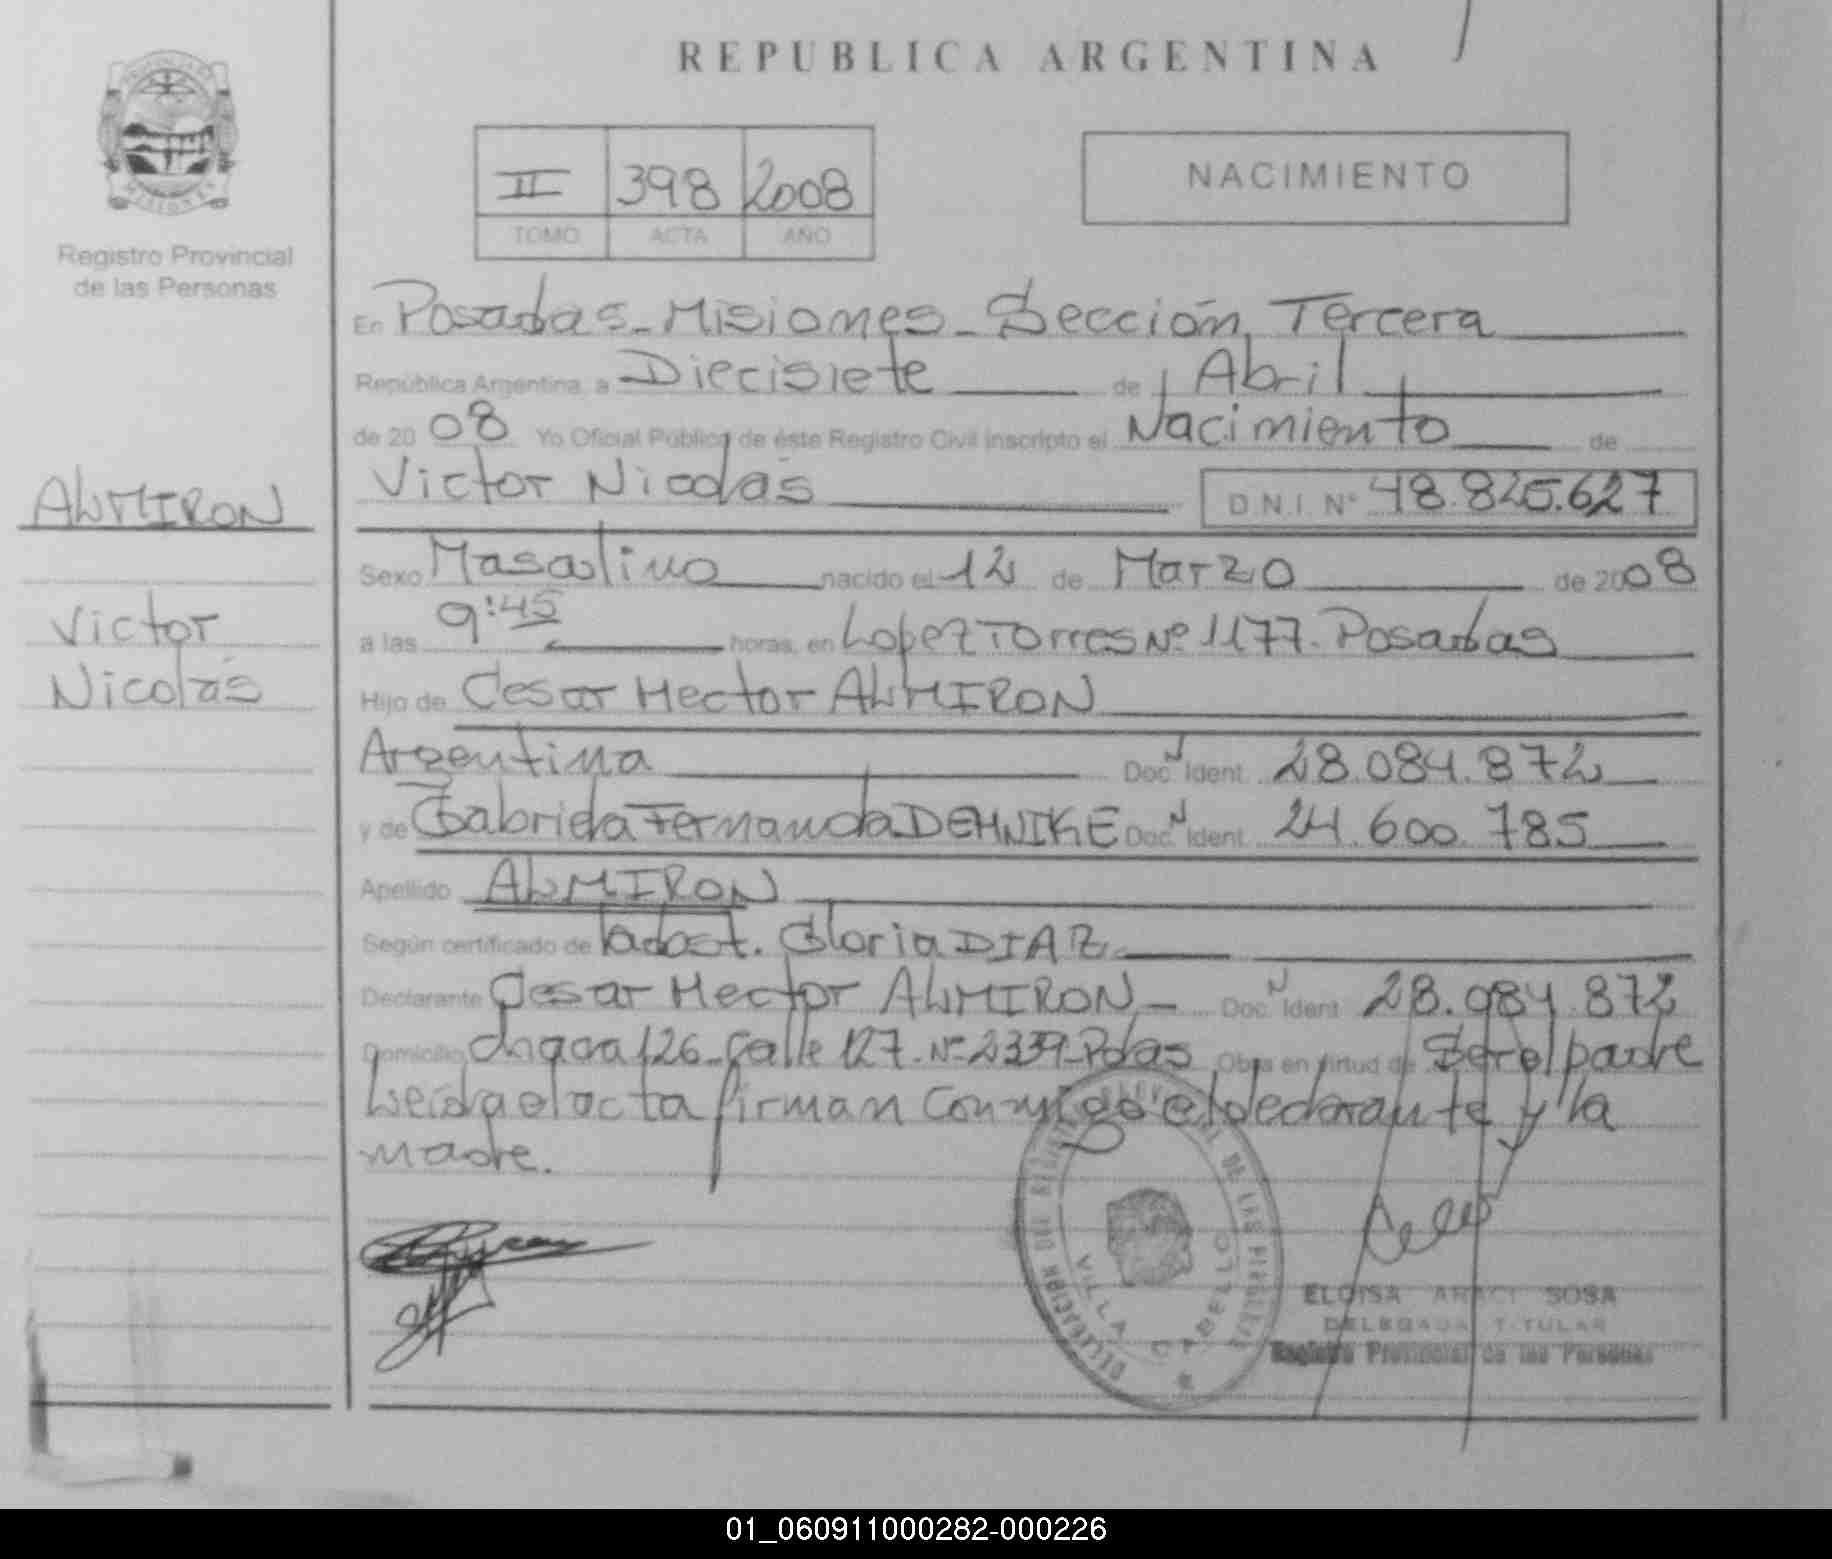 REPUBLICA ARGENTINA
PROVINCIA DE
MISIONES
Registro Provincial
de las Personas
II 398 2008
TOMO ACTA AÑO
NACIMIENTO
En Posadas - Misiones - Sección Tercera
República Argentina, a Diecisiete de Abril
de 2008 Yo Oficial Público de éste Registro Civil inscripto el Nacimiento de
Victor Nicolás D.N.I. Nº 48.825.627
ALMIRON
Sexo Masculino nacido el 12 de Marzo de 2008
Victor
a las 9:45 horas, en Lopez Torres Nº 1177. Posadas
Nicolás
Hijo de Cesar Hector ALMIRON
Argentina Doc. N Ident. 28.084.872
y de Gabriela Fernanda DEHNIKE Doc. N Ident. 24.600.785
Apellido ALMIRON
Según certificado de Gloria DIAZ
Declarante Cesar Hector ALMIRON Doc. N Ident. 28.084.872
Domicilio chacra 126 - Calle 127 - Nº 2339 - Pdas Obra en virtud de Ser el padre
Leída el acta firman conmigo el declarante y la
madre.
DELEGACION DEL REGISTRO PROVINCIAL DE LAS PERSONAS
VILLA CABELLO
ELOISA ARACI SOSA
DELEGADA TITULAR
Registro Provincial de las Personas
01_060911000282-000226